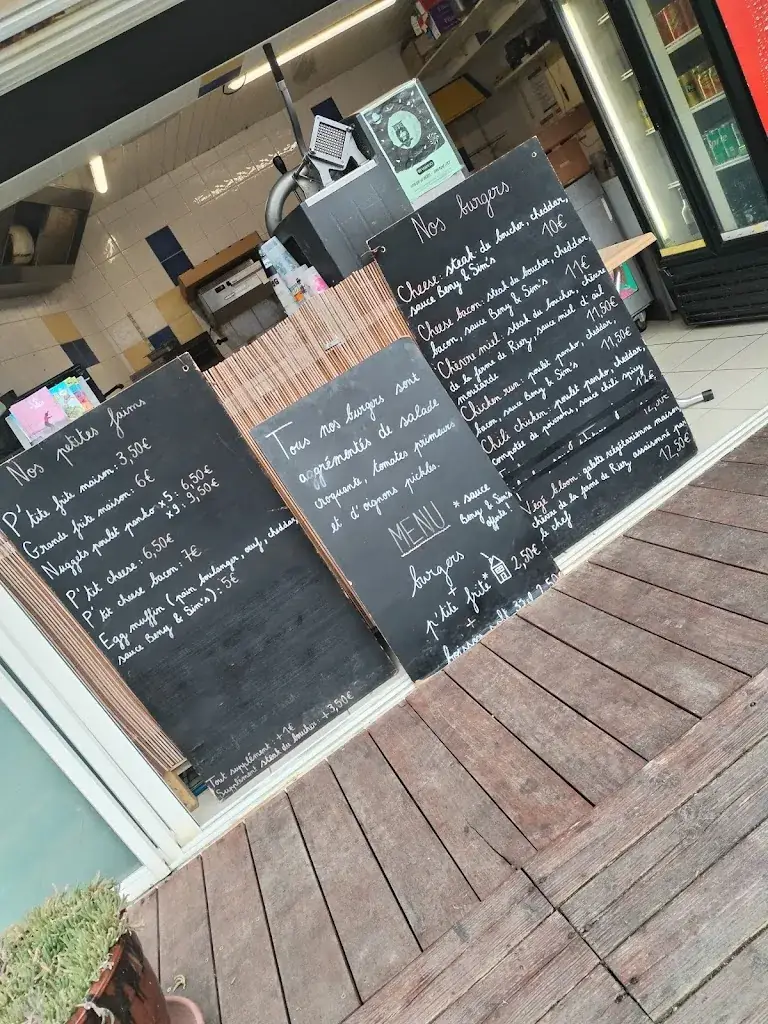 Nos petites faims
P'tite frite maison : 3,50€
Grande frite maison : 6€
Nuggets poulet panko x5 : 6,50€
x9 : 9,50€
P'tit cheese : 6,50€
P'tit cheese bacon : 7€
Egg muffin (pain boulanger, oeuf, cheddar,
sauce Beny & Sim's) : 5€
Tout supplément : +1€
Supplément steak du boucher : +3,50€
Tous nos burgers sont
aggrémentés de salade
croquante, tomates primeurs
et d'oignons pickles.
MENU
* sauce
Beny & Sim's
offerte !
burgers
+
p'tite frite* 2,50€
+
boisson
Nos burgers
Cheese : steak du boucher, cheddar,
sauce Beny & Sim's 10€
Cheese bacon : steak du boucher, cheddar,
bacon, sauce Beny & Sim's 11€
Chèvre miel : steak du boucher, chèvre
de la ferme de Riez, sauce miel d'ail
moutarde 11,50€
Chicken run : poulet panko, cheddar,
bacon, sauce Beny & Sim's 11,50€
Chili chicken : poulet panko, cheddar,
compotée de poivrons, sauce chili spicy
12€
Végé bloom : galette végétarienne maison,
chèvre de la ferme de Riez, assaisonné par
le chef 12,50€